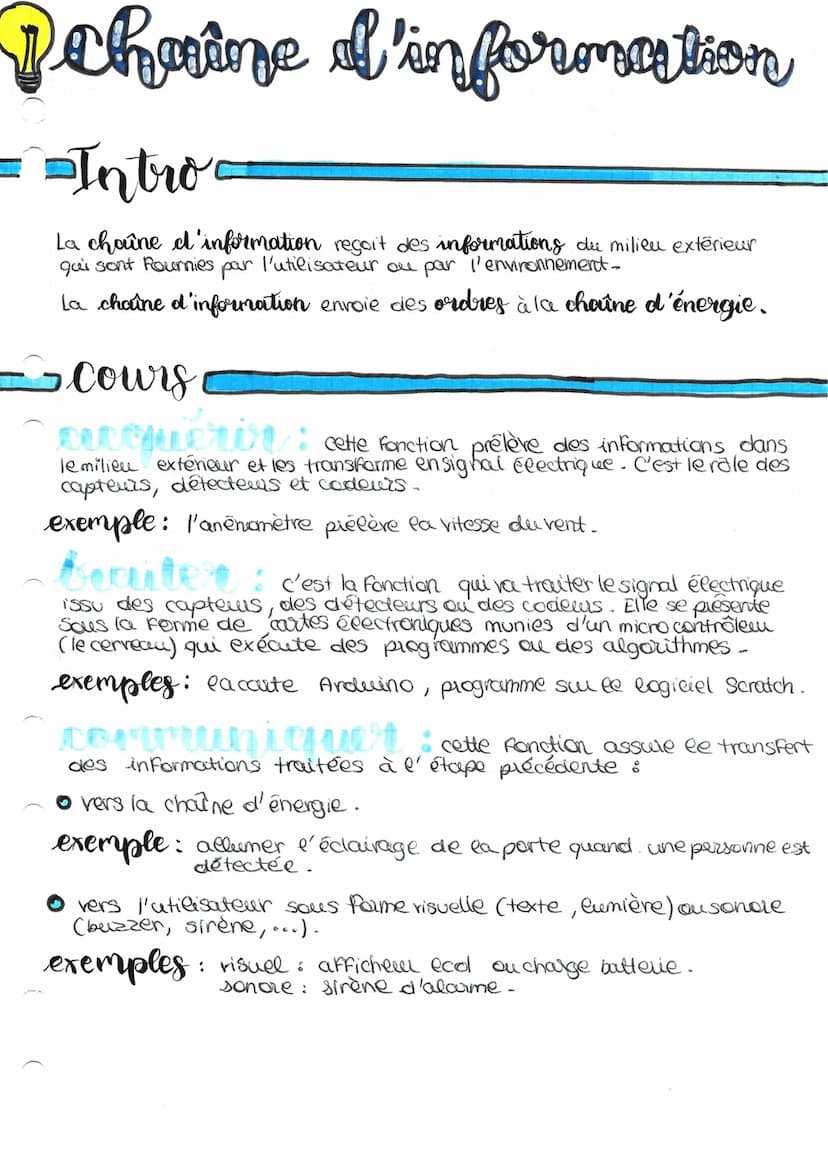 Chaîne d'information
Intro
La chaîne d'information reçoit des informations du milieu extérieur
qui sont fournies par l'utilisateur ou par l'environnement.
La chaîne d'information envoie des ordres à la chaîne d'énergie.
Cours
acquérir : cette fonction prélève des informations dans
le milieu extérieur et les transforme en signal électrique. C'est le rôle des
capteurs, détecteurs et codeurs.
exemple : l'anénomètre prélève la vitesse du vent.
traiter : c'est la fonction qui va traiter le signal électrique
issu des capteurs, des détecteurs ou des codeurs. Elle se présente
sous la forme de cartes électroniques munies d'un microcontrôleur
(le cerveau) qui exécute des programmes ou des algorithmes.
exemples : la carte Arduino, programme sur le logiciel Scratch.
communiquer : cette fonction assure le transfert
des informations traitées à l'étape précédente :
vers la chaîne d'énergie.
exemple : allumer l'éclairage de la porte quand une personne est
détectée.
vers l'utilisateur sous forme visuelle (texte, lumière) ou sonore
(buzzer, sirène, ...).
exemples : visuel : afficheur lcd ou charge batterie.
sonore : sirène d'alarme.